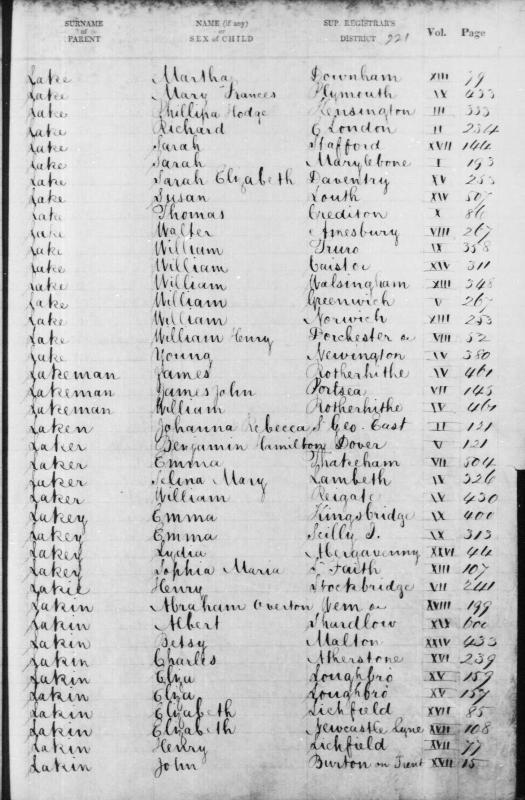 SURNAME of PARENT NAME (if any) or SEX of CHILD SUP. REGISTRAR'S DISTRICT 221 Vol. Page
Lake Martha Downham XIII 79
Lake Mary Frances Plymouth IX 433
Lake Phillipa Hodge Kensington III 333
Lake Richard E London II 234
Lake Sarah Stafford XVII 144
Lake Sarah Marylebone I 193
Lake Sarah Elizabeth Daventry XV 253
Lake Susan Louth XIV 507
Lake Thomas Crediton X 86
Lake Walter Amesbury VIII 267
Lake William Truro IX 358
Lake William Caistor XIV 311
Lake William Walsingham XIII 348
Lake William Greenwich V 267
Lake William Norwich XIII 253
Lake William Henry Dorchester &c VIII 52
Lake Young Newington IV 380
Lakeman James Rotherhithe IV 461
Lakeman James John Portsea VII 145
Lakeman William Rotherhithe IV 461
Laken Johanna Rebecca S Geo. East II 121
Laker Benjamin Hamilton Dover V 121
Laker Emma Thakeham VII 504
Laker Selina Mary Lambeth IV 326
Laker William Reigate IV 430
Lakey Emma Kingsbridge IX 400
Lakey Emma Scilly I. IX 313
Lakey Lydia Abergavenny XXVI 44
Lakey Sophia Maria St Faith XIII 107
Lakie Henry Stockbridge VII 241
Lakin Abraham Overton Wem &c XVIII 199
Lakin Albert Shardlow XIX 600
Lakin Betsy Malton XXIV 433
Lakin Charles Atherstone XVI 239
Lakin Eliza Loughbro XV 159
Lakin Eliza Loughbro XV 157
Lakin Elizabeth Lichfield XVII 85
Lakin Elizabeth Newcastle Lyne XVII 108
Lakin Henry Lichfield XVII 77
Lakin John Burton on Trent XVII 15